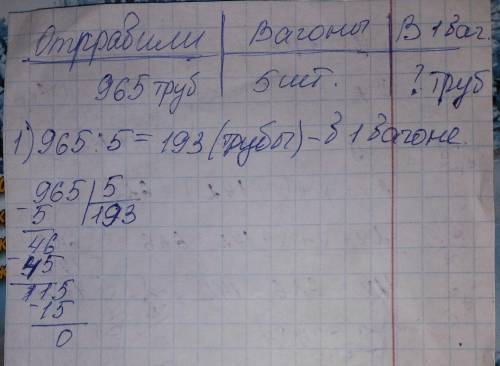 Отрравили Вагоны В 1 Ваг.
965 труб 5 шт. ? труб
1) 965 : 5 = 193 (трубы) – В 1 Вагоне
965 5
- 5 193
46
- 45
115
- 15
0